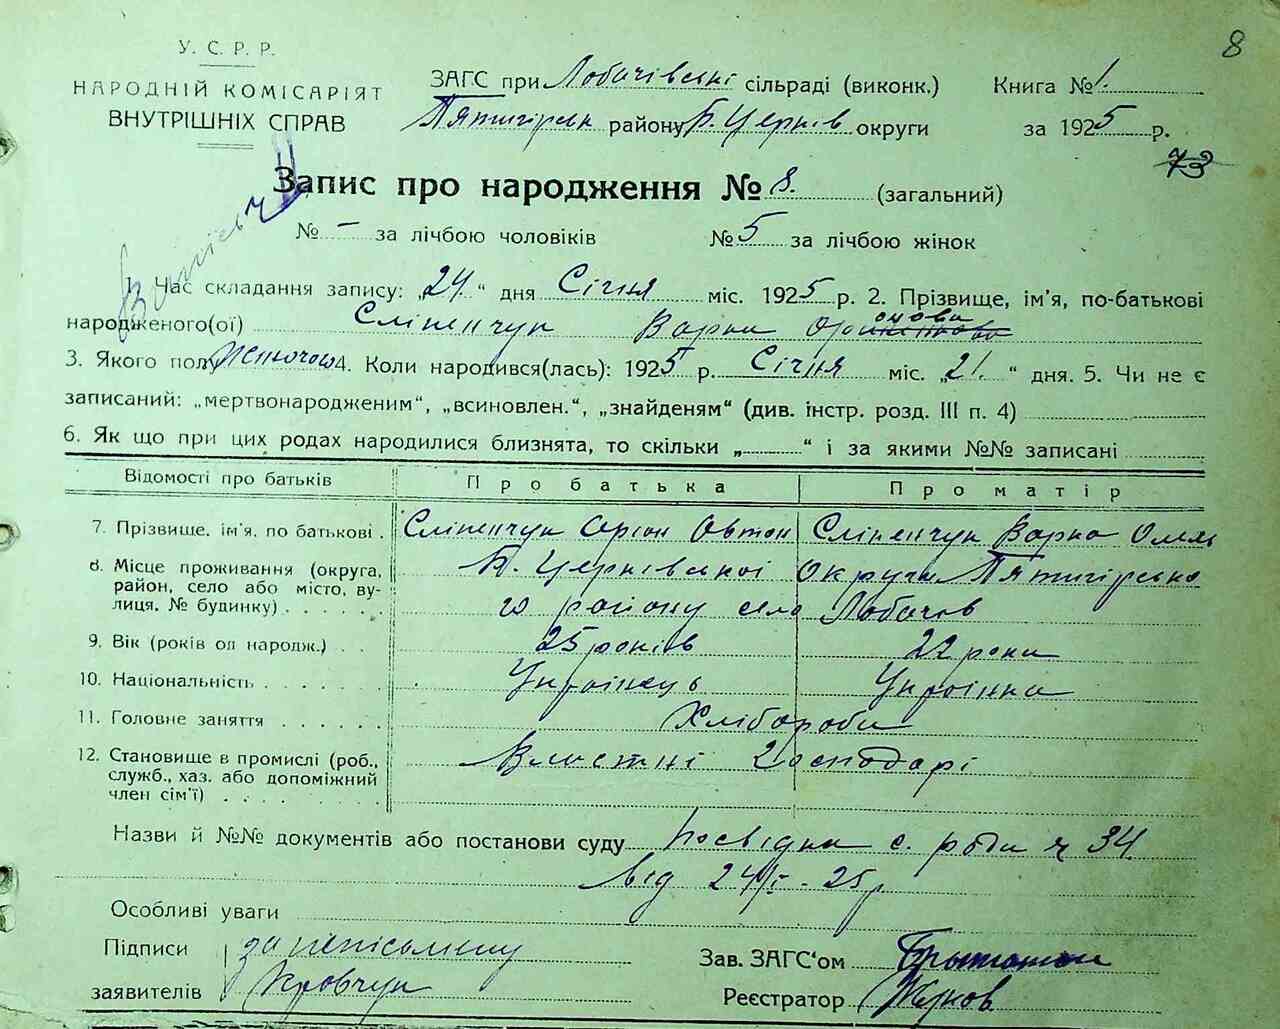 8
У. С. Р. Р.
НАРОДНІЙ КОМІСАРІЯТ
ВНУТРІШНІХ СПРАВ
ЗАГС при Лобачівські сільраді (виконк.) Книга № 1.
Пятигірськ району Б. Церків округи за 1925 р.
73
Запис про народження № 8. (загальний)
№ – за лічбою чоловіків № 5 за лічбою жінок
1. Час складання запису: „24.“ дня Січня міс. 1925 р. 2. Прізвище, ім'я, по-батькові
народженого(ої) Сліпенчук Варка
3. Якого полу Жіночого 4. Коли народився(лась): 1925 р. Січня міс. „21.“ дня. 5. Чи не є
записаний: „мертвонародженим“, „всиновлен.“, „знайденям“ (див. інстр. розд. III п. 4)
6. Як що при цих родах народилися близнята, то скільки „ “ і за якими №№ записані
Відомості про батьків Про батька Про матір
7. Прізвище, ім'я, по батькові . Сліпенчук Оріон Овтон Сліпенчук Варка Омель
8. Місце проживання (округа, район, село або місто, вулиця, № будинку) . . . . . Б. Церківської Округи Пятигірсько
го району села Лобачів
9. Вік (років од народж.) . . 25 років 22 роки
10. Національність . . . . . . . Українець Українка
11. Головне заняття . . . . . . Хлібороби
12. Становище в промислі (роб., служб., хаз. або допоміжний член сім'ї) . . . . . . . . Властні Господарі
Назви й №№ документів або постанови суду Посвідка с. ради ч 34.
від 24/I - 25 р
Особливі уваги
Підписи за неписьмену Зав. ЗАГС'ом
заявителів Кровчук Реєстратор Жуков